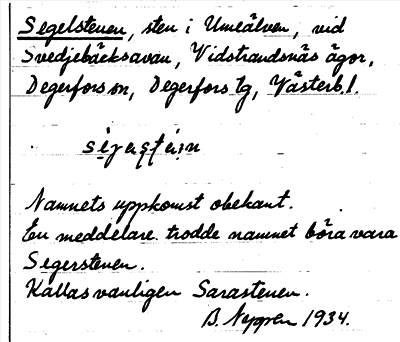 Segelstenen, sten i Umeälven, vid
Svedjebäcksavan, Vidstrandsnäs ägor,
Degerfors sn, Degerfors tg, Västerb. l.
Namnets uppkomst obekant.
En meddelare trodde namnet böra vara
Segerstenen.
Kallas vanligen Sarastenen.
B. 1934.